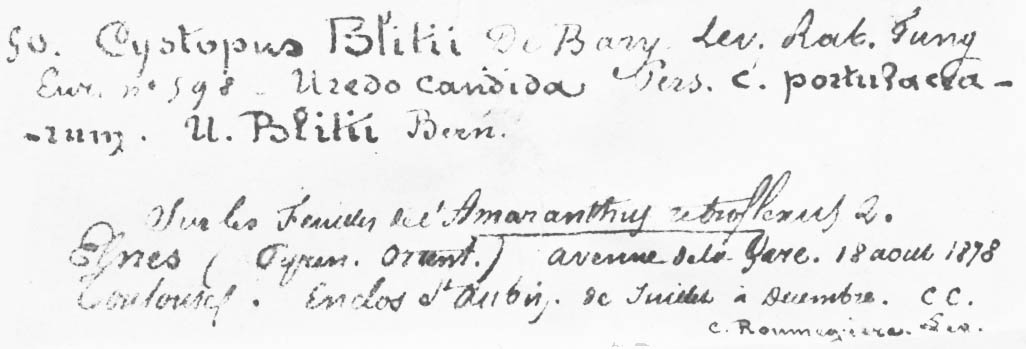 50. Cystopus Bliti De Bary. Lev. Rab. Fung
Eur. nº 598 - Uredo candida Pers. C. portulacea-
-rum. U. Bliti Bern.
Sur les Feuilles de l'Amaranthus retroflexus L.
(Pyren. Orient.) avenue de la Gare. 18 aout 1878
Toulouse. Enclos St Aubin. de Juillet à Decembre. CC.
C. Roumeguere.